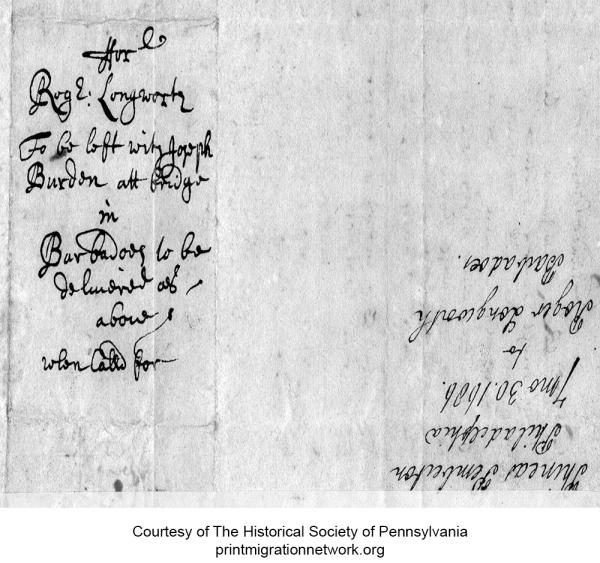 ffor
Rogr: Longworth
To be left with Joseph
Burden att bridge
in
Barbadoes to be
delivered as
above
when Calld for
Phineas Pemberton
Philadelphia
7mo 30. 1686.
to
Roger Longworth
Barbadoes.
Courtesy of The Historical Society of Pennsylvania
printmigrationnetwork.org